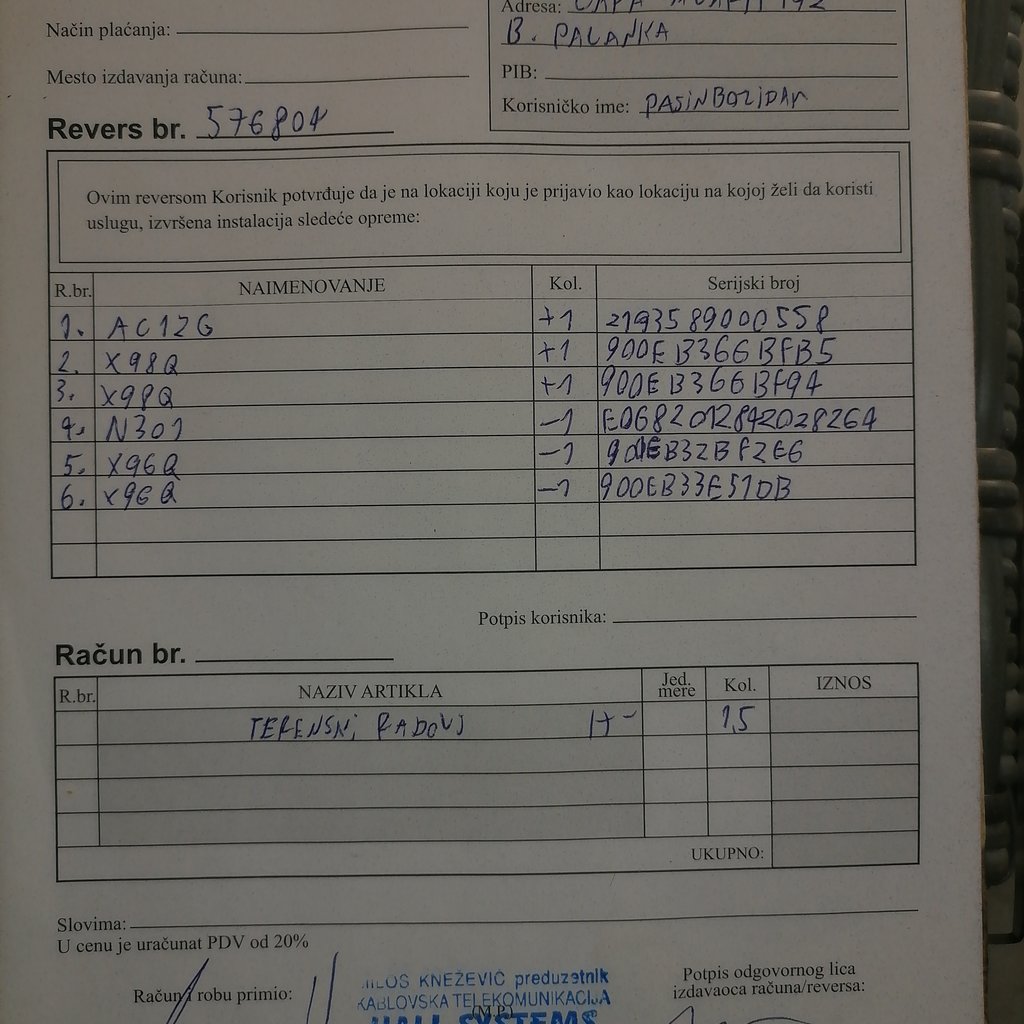 Način plaćanja:
Adresa: 192
B. PALANKA
Mesto izdavanja računa:
PIB:
Korisničko ime: PASINBOZIDAR
Revers br. 576801
Ovim reversom Korisnik potvrđuje da je na lokaciji koju je prijavio kao lokaciju na kojoj želi da koristi
uslugu, izvršena instalacija sledeće opreme:
R.br. NAIMENOVANJE Kol. Serijski broj
1. AC12G +1 2193589000558
2. X98Q +1 900EB366BFB5
3. X98Q +1 900EB366BF94
4. N301 -1 E0682012842028264
5. X96Q -1 900EB32BF2E6
6. X96Q -1 900EB33E51DB
Potpis korisnika:
Račun br.
R.br. NAZIV ARTIKLA Jed. mere Kol. IZNOS
TERENSKI RADOVI H- 1,5
UKUPNO:
Slovima:
U cenu je uračunat PDV od 20%
Račun i robu primio:
MILOŠ KNEŽEVIĆ preduzetnik
KABLOVSKA TELEKOMUNIKACIJA
(M.P.)
SYSTEMS
Potpis odgovornog lica
izdavaoca računa/reversa: